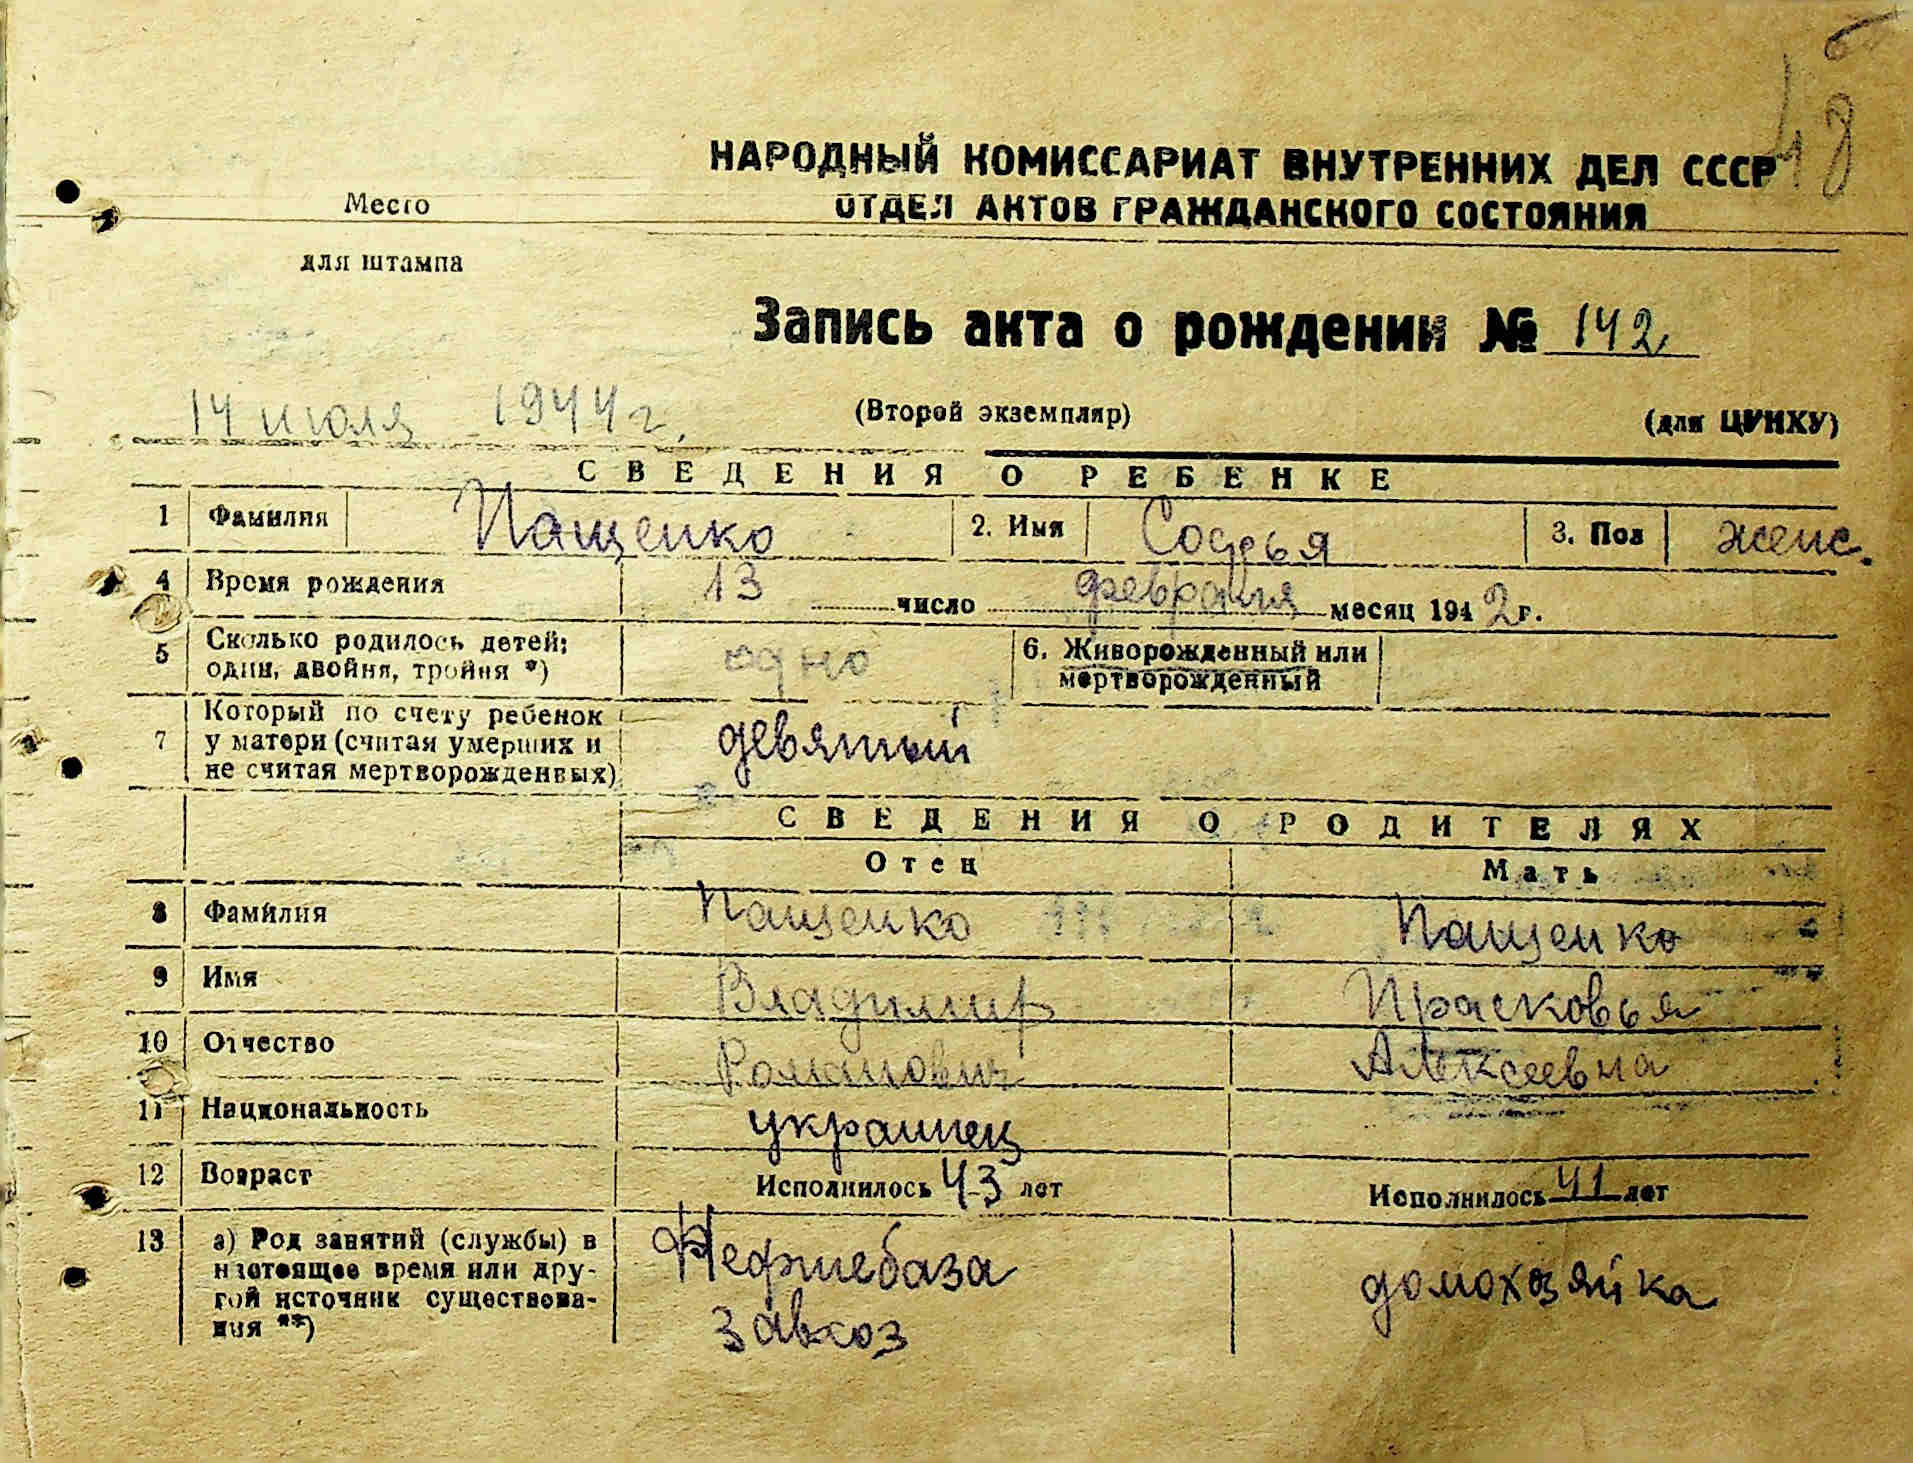 48
НАРОДНЫЙ КОМИССАРИАТ ВНУТРЕННИХ ДЕЛ СССР
ОТДЕЛ АКТОВ ГРАЖДАНСКОГО СОСТОЯНИЯ
Место
для штампа
Запись акта о рождении № 142
14 июля 1944 г.
(Второй экземпляр)
(для ЦУНХУ)
СВЕДЕНИЯ О РЕБЕНКЕ
1 Фамилия Пащенко 2. Имя Софья 3. Пол женс.
4 Время рождения 13 число февраля месяц 1942 г.
5 Сколько родилось детей: один, двойня, тройня *) одно 6. Живорожденный или мертворожденный
7 Который по счету ребенок у матери (считая умерших и не считая мертворожденных) девятый
СВЕДЕНИЯ О РОДИТЕЛЯХ
Отец Мать
8 Фамилия Пащенко Пащенко
9 Имя Владимир Прасковья
10 Отчество Романович Алексеевна
11 Национальность украинец
12 Возраст Исполнилось 43 лет Исполнилось 41 лет
13 а) Род занятий (службы) в настоящее время или другой источник существования **) Нефтебаза завхоз домохозяйка